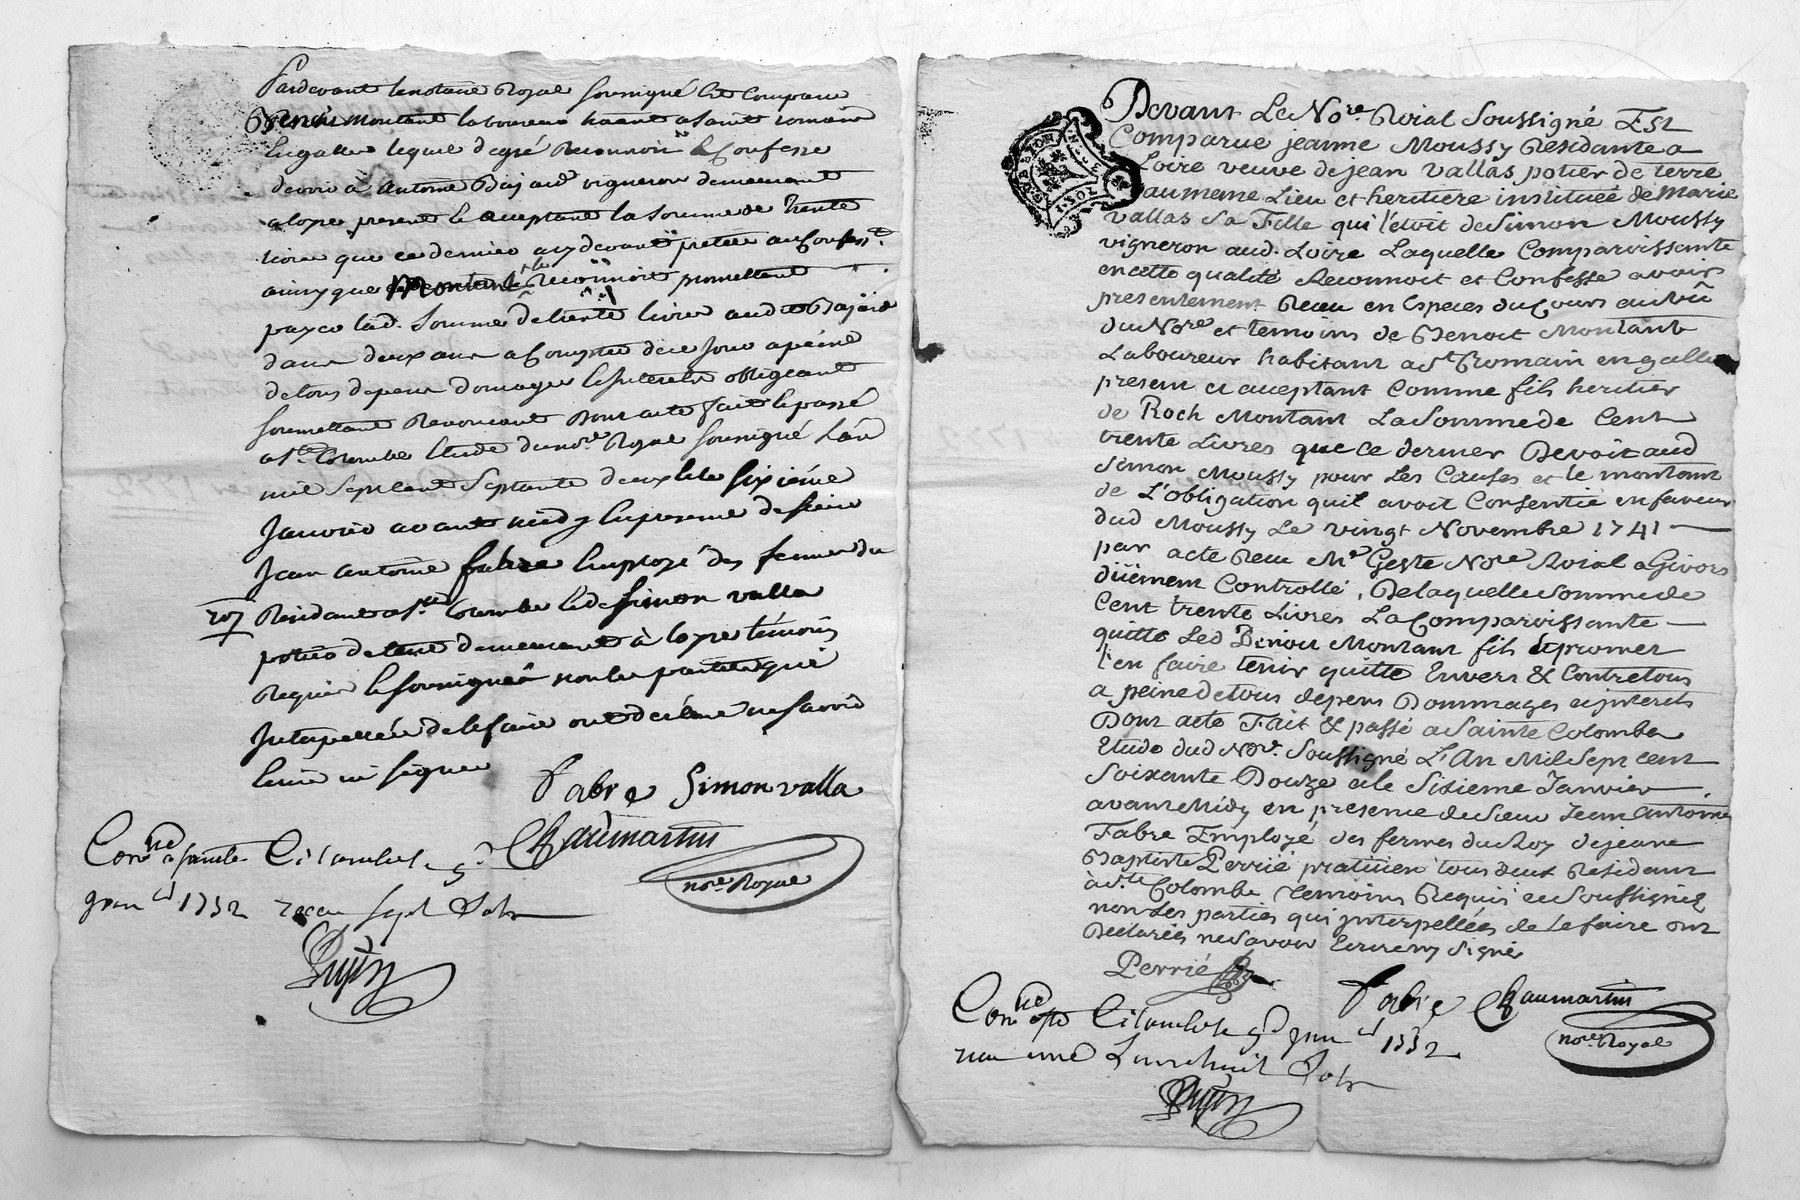 Pardevant lenotaire Royal soussigné Est Comparu
Benoit Montant laboureur havant a Saint romain
Engallie lequel degré Reconnoit & Confesse
devoir à Antoine Bajard vigneron demeurant
a loyre present & acceptant la somme de trente
livres que ce dernier cy devant pretée au Confess.t
ainsy que Montant le reconnoit promettant
payer lad. Somme de trente livres aud Bajard
dans deux ans a Compter de ce jour a peine
de tous depens domages & interets obligeant
soumettant Renonçant Dont acte fait & passé
a Ste. Colombe Etude du no.re Royal soussigné L'an
mil Sept Cent Septante deux & le sixiéme
Janvier avant midy En presence de sieur
Jean antoine fabre Employé des fermes du
roy Residant a Ste Colombe & de Simon valla
potier de terre demeurant à loyre témoins
Requis & soussignés non les parties qui
Interpellées de le faire ont déclaré ne savoir
Ecrire ni signer
Fabre Simon valla
Chaumartin
nore Royal
Con.lé a sainte Colombe le 9
janv 1772 reçu sept sols
Devant Le No.re Roial Soussigné Est
Comparue jeanne Moussy Residante a
Loire veuve de jean vallas potier de terre
aumeme Lieu et heritiere instituée de Marie
vallas Sa Fille qui l'étoit de Simon Moussy
vigneron aud. Loire Laquelle Comparoissante
en cette qualité Reconnoit et Confesse avoir
presentement Reçu en Especes du Cours au vû
du No.re et temoins de Benoit Montant
Laboureur habitant a St Romain en galle
present et acceptant Comme fils heritier
de Roch Montant La Somme de Cent
trente Livres que Ce dernier Devoit aud
Simon Moussy pour Les Causes et le montant
de L'obligation quil avoit Consentie en faveur
dud Moussy Le vingt Novembre 1741
par acte Reçu Me Geste No.re Roial a Givors
düement Controllé, De laquelle Somme de
Cent trente Livres La Comparoissante
quitte Led Benoit Montant fils & promet
l'en faire tenir quitte Envers & Contre tous
a peine de tous depens Dommages et interets
Dont acte Fait & passé a Sainte Colombe
Etude dud No.re Soussigné L'An Mil Sept Cent
Soixante Douze & le Sixieme Janvier
avant Midy en presence de Sieur Jean Antoine
Fabre Employé des fermes du Roy de jean
Baptiste Perrié praticien tous deux Residant
à Ste Colombe Temoins Requis et Soussignés
non Les parties qui interpellées de Le faire ont
Declarées ne Savoir Ecrire ny Signé
Perrié
Fabre Chaumartin
nore Royal
Con.lé a Ste Colombe le 9 janv 1772
reçu une Livre huit Sols